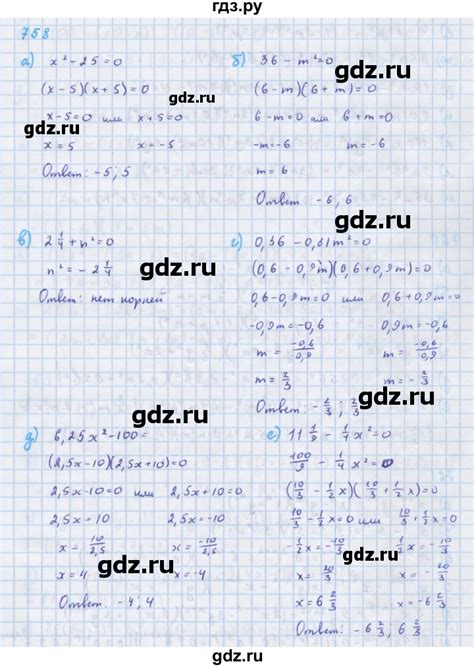 гдз.ру
758
а) x² - 25 = 0
(x - 5)(x + 5) = 0
x - 5 = 0 или x + 5 = 0
x = 5 x = -5
Ответ: -5; 5
б) 36 - m² = 0
(6 - m)(6 + m) = 0
6 - m = 0 или 6 + m = 0
-m = -6 m = -6
m = 6
Ответ: -6; 6
в) 2 1/4 + n² = 0
n² = -2 1/4
Ответ: нет корней
г) 0,36 - 0,81m² = 0
(0,6 - 0,9m)(0,6 + 0,9m) = 0
0,6 - 0,9m = 0 или 0,6 + 0,9m = 0
-0,9m = -0,6 0,9m = -0,6
m = -0,6/0,9 m = -0,6/0,9
m = 2/3
Ответ: -2/3; 2/3
д) 6,25x² - 100 =
(2,5x - 10)(2,5x + 10) = 0
2,5x - 10 = 0 или 2,5x + 10 = 0
2,5x = 10 2,5x = -10
x = 10/2,5 x = -10/2,5
x = 4 x = -4
Ответ: -4; 4
е) 11 1/9 - 1/4 x² = 0
100/9 - 1/4 x² = 0
(10/3 - 1/2 x)(10/3 + 1/2 x) = 0
10/3 - 1/2 x = 0 или 10/3 + 1/2 x = 0
-1/2 x = -10/3 1/2 x = -10/3
x = 20/3 x = -20/3
x = 6 2/3
Ответ: -6 2/3; 6 2/3
gdz.ru
gdz.ru
gdz.ru
gdz.ru
gdz.ru
gdz.ru
gdz.ru
gdz.ru
gdz.ru
гдз.ру